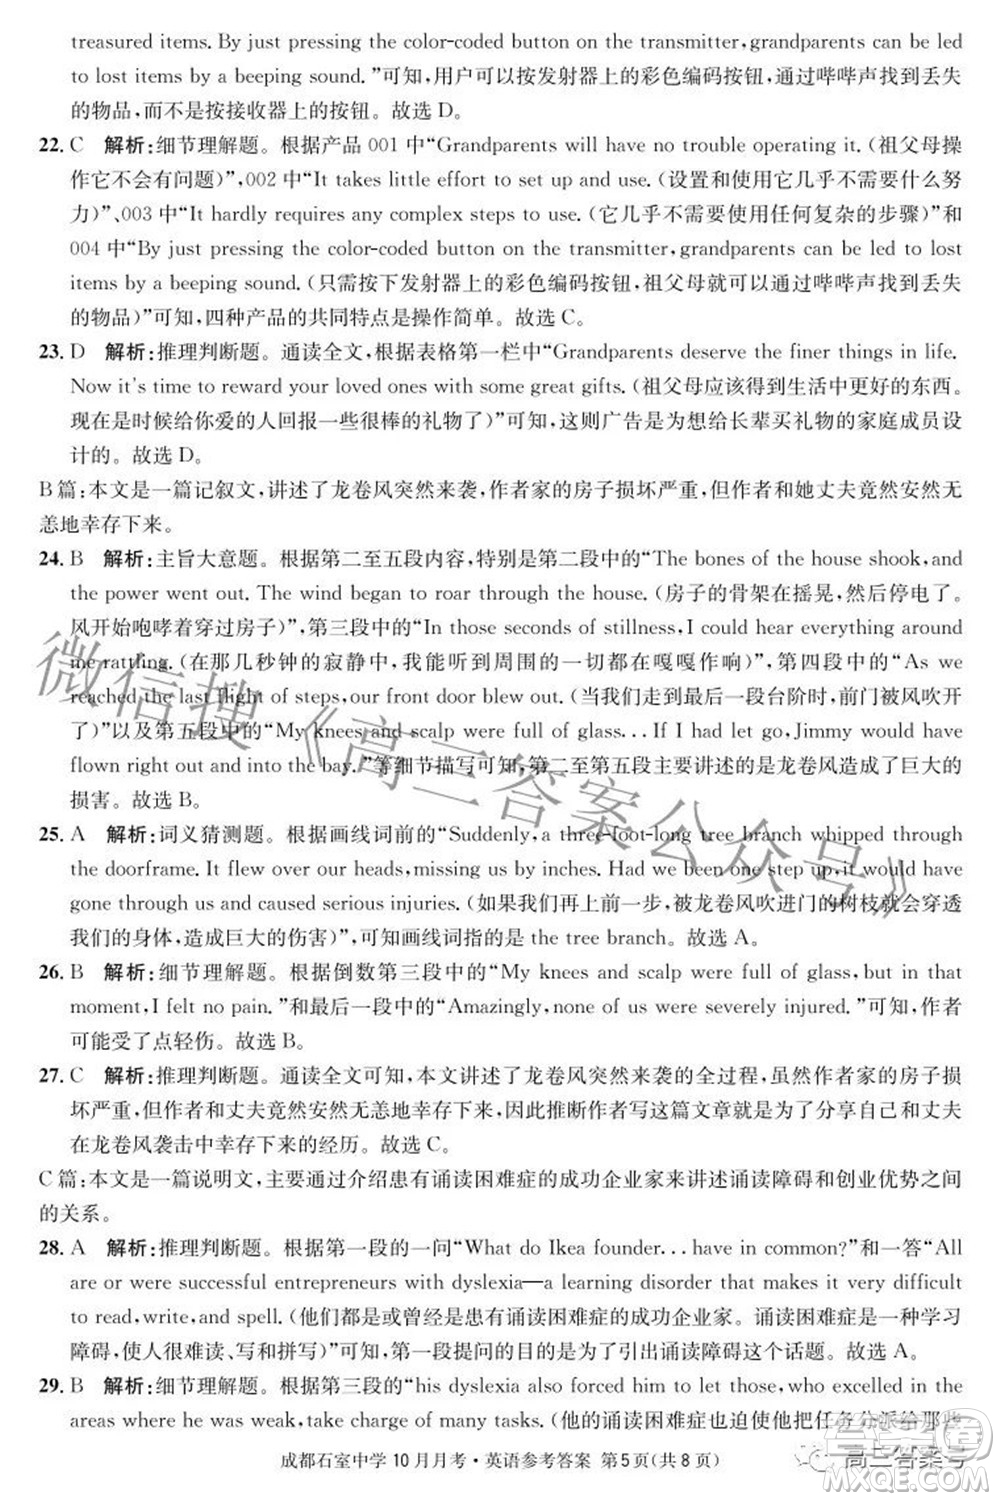 treasured items. By just pressing the color-coded button on the transmitter, grandparents can be led
to lost items by a beeping sound. ”可知，用户可以按发射器上的彩色编码按钮，通过哔哔声找到丢失
的物品，而不是按接收器上的按钮。故选 D。
22. C 解析：细节理解题。根据产品 001 中“Grandparents will have no trouble operating it. (祖父母操
作它不会有问题)”，002 中“It takes little effort to set up and use. (设置和使用它们几乎不需要什么努
力)”、003 中“It hardly requires any complex steps to use. (它几乎不需要使用任何复杂的步骤)”和
004 中“By just pressing the color-coded button on the transmitter, grandparents can be led to lost
items by a beeping sound. (只需按下发射器上的彩色编码按钮，祖父母就可以通过哔哔声找到丢失
的物品)”可知，四种产品的共同特点是操作简单。故选 C。
23. D 解析：推理判断题。通读全文，根据表格第一栏中“Grandparents deserve the finer things in life.
Now it's time to reward your loved ones with some great gifts. (祖父母应该得到生活中更好的东西。
现在是时候给你爱的人回报一些很棒的礼物了)”可知，这则广告是为想给长辈买礼物的家庭成员设
计的。故选 D。
B 篇：本文是一篇记叙文，讲述了龙卷风突然来袭，作者家的房子损坏严重，但作者和她丈夫竟然安然无
恙地幸存下来。
24. B 解析：主旨大意题。根据第二至五段内容，特别是第二段中的“The bones of the house shook, and
the power went out. The wind began to roar through the house. (房子的骨架在摇晃，然后停电了。
风开始咆哮着穿过房子)”，第三段中的“In those seconds of stillness, I could hear everything around
me rattling. (在那几秒钟的寂静中，我能听到周围的一切都在嘎嘎作响)”，第四段中的“As we
reached the last flight of steps, our front door blew out. (当我们走到最后一段台阶时，前门被风吹开
了)”以及第五段中的“My knees and scalp were full of glass... If I had let go, Jimmy would have
flown right out and into the bay. ”等细节描写可知，第二至第五段主要讲述的是龙卷风造成了巨大的
损害。故选 B。
25. A 解析：词义猜测题。根据画线词前的“Suddenly, a three-foot-long tree branch whipped through
the doorframe. It flew over our heads, missing us by inches. Had we been one step up, it would have
gone through us and caused serious injuries. (如果我们再上前一步，被龙卷风吹进门的树枝就会穿透
我们的身体，造成巨大的伤害)”，可知画线词指的是 the tree branch。故选 A。
26. B 解析：细节理解题。根据倒数第三段中的“My knees and scalp were full of glass, but in that
moment, I felt no pain. ”和最后一段中的“Amazingly, none of us were severely injured. ”可知，作者
可能受了点轻伤。故选 B。
27. C 解析：推理判断题。通读全文可知，本文讲述了龙卷风突然来袭的全过程，虽然作者家的房子损
坏严重，但作者和丈夫竟然安然无恙地幸存下来，因此推断作者写这篇文章就是为了讲述自己和丈夫
在龙卷风袭击中幸存下来的经历。故选 C。
C 篇：本文是一篇说明文，主要通过介绍患有诵读困难症的成功企业家来讲述诵读障碍和创业优势之间
的关系。
28. A 解析：推理判断题。根据第一段的一问“What do Ikea founder... have in common?”和一答“All
are or were successful entrepreneurs with dyslexia—a learning disorder that makes it very difficult
to read, write, and spell. (他们都是或曾经是患有诵读困难症的成功企业家。诵读困难症是一种学习
障碍，使人很难读、写和拼写)”可知，第一段提问的目的是为了引出诵读障碍这个话题。故选 A。
29. B 解析：细节理解题。根据第三段的“his dyslexia also forced him to let those, who excelled in the
areas where he was weak, take charge of many tasks. (他的诵读困难症也迫使他把任务分派给那些
成都石室中学 10 月月考·英语参考答案 第 5 页(共 8 页)
微信搜《高三答案公众号》
高三答案号
MXQE.COM